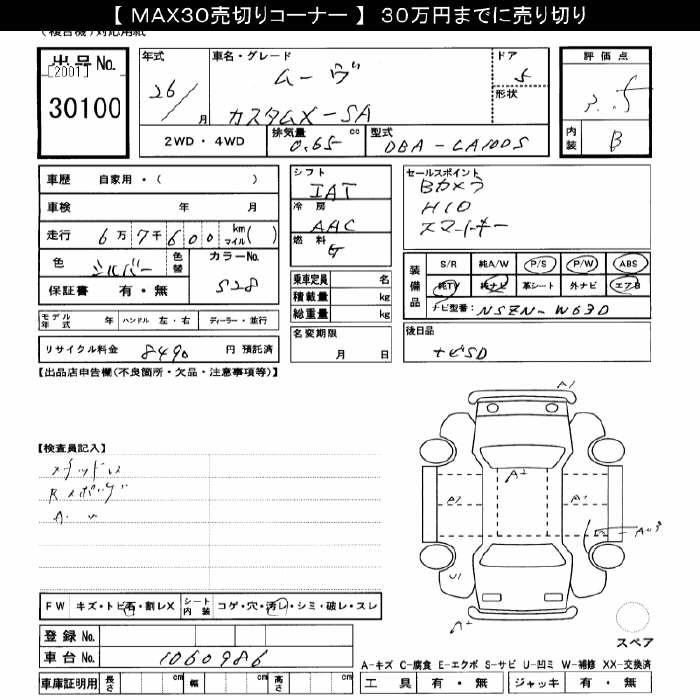 【 MAX30売切りコーナー 】 30万円までに売り切り
(複合機)対応用紙
出品No. [2001] 30100
年式 26/ 月
車名・グレード ムーヴ カスタムX-SA
ドア 5
形状
評価点 3.5
内装 B
2WD・4WD
排気量 0.65 cc
型式 DBA-LA100S
車歴 自家用・( )
車検 年 月
走行 6万7千600 km マイル( )
色 シルバー 色替 カラーNo. S28
保証書 有・無
シフト IAT
冷房 AAC
燃料 G
乗車定員 名
積載量 kg
総重量 kg
セールスポイント
Bカメラ
HID
スマートキー
装備品 S/R 純A/W P/S P/W ABS
純TV 純ナビ 革シート 外ナビ エアB
ナビ型番: NSZN-W63D
モデル年式 年 ハンドル 左・右 ディーラー・並行
名変期限 月 日
後日品 ナビSD
リサイクル料金 8490 円 預託済
【出品店申告欄(不良箇所・欠品・注意事項等)】
A1
A2
A1
A1
U1
A2
【検査員記入】
FW キズ・トビ石・割レX シート内装 コゲ・穴・汚レ・シミ・破レ・スレ
登録No.
車台No. 1060986
車庫証明用 長さ cm 幅 cm 高さ cm
スペア
A-キズ C-腐食 E-エクボ S-サビ U-凹ミ W-補修 XX-交換済
工具 有・無 ジャッキ 有・無